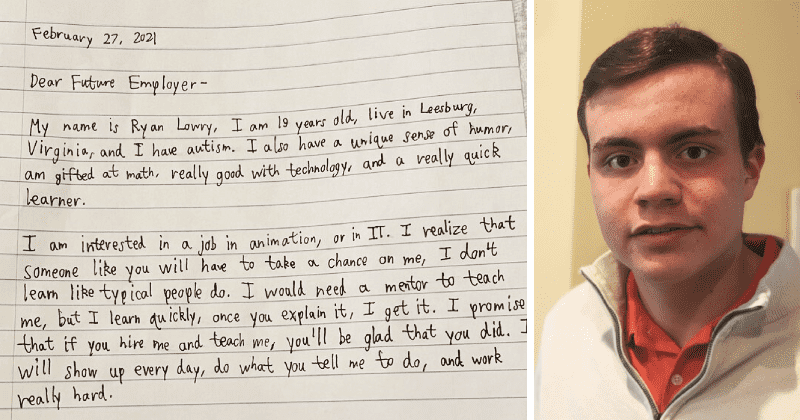 February 27, 2021
Dear Future Employer-
My name is Ryan Lowry, I am 19 years old, live in Leesburg,
Virginia, and I have autism. I also have a unique sense of humor,
am gifted at math, really good with technology, and a really quick
learner.
I am interested in a job in animation, or in IT. I realize that
someone like you will have to take a chance on me, I don't
learn like typical people do. I would need a mentor to teach
me, but I learn quickly, once you explain it, I get it. I promise
that if you hire me and teach me, you'll be glad that you did. I
will show up every day, do what you tell me to do, and work
really hard.